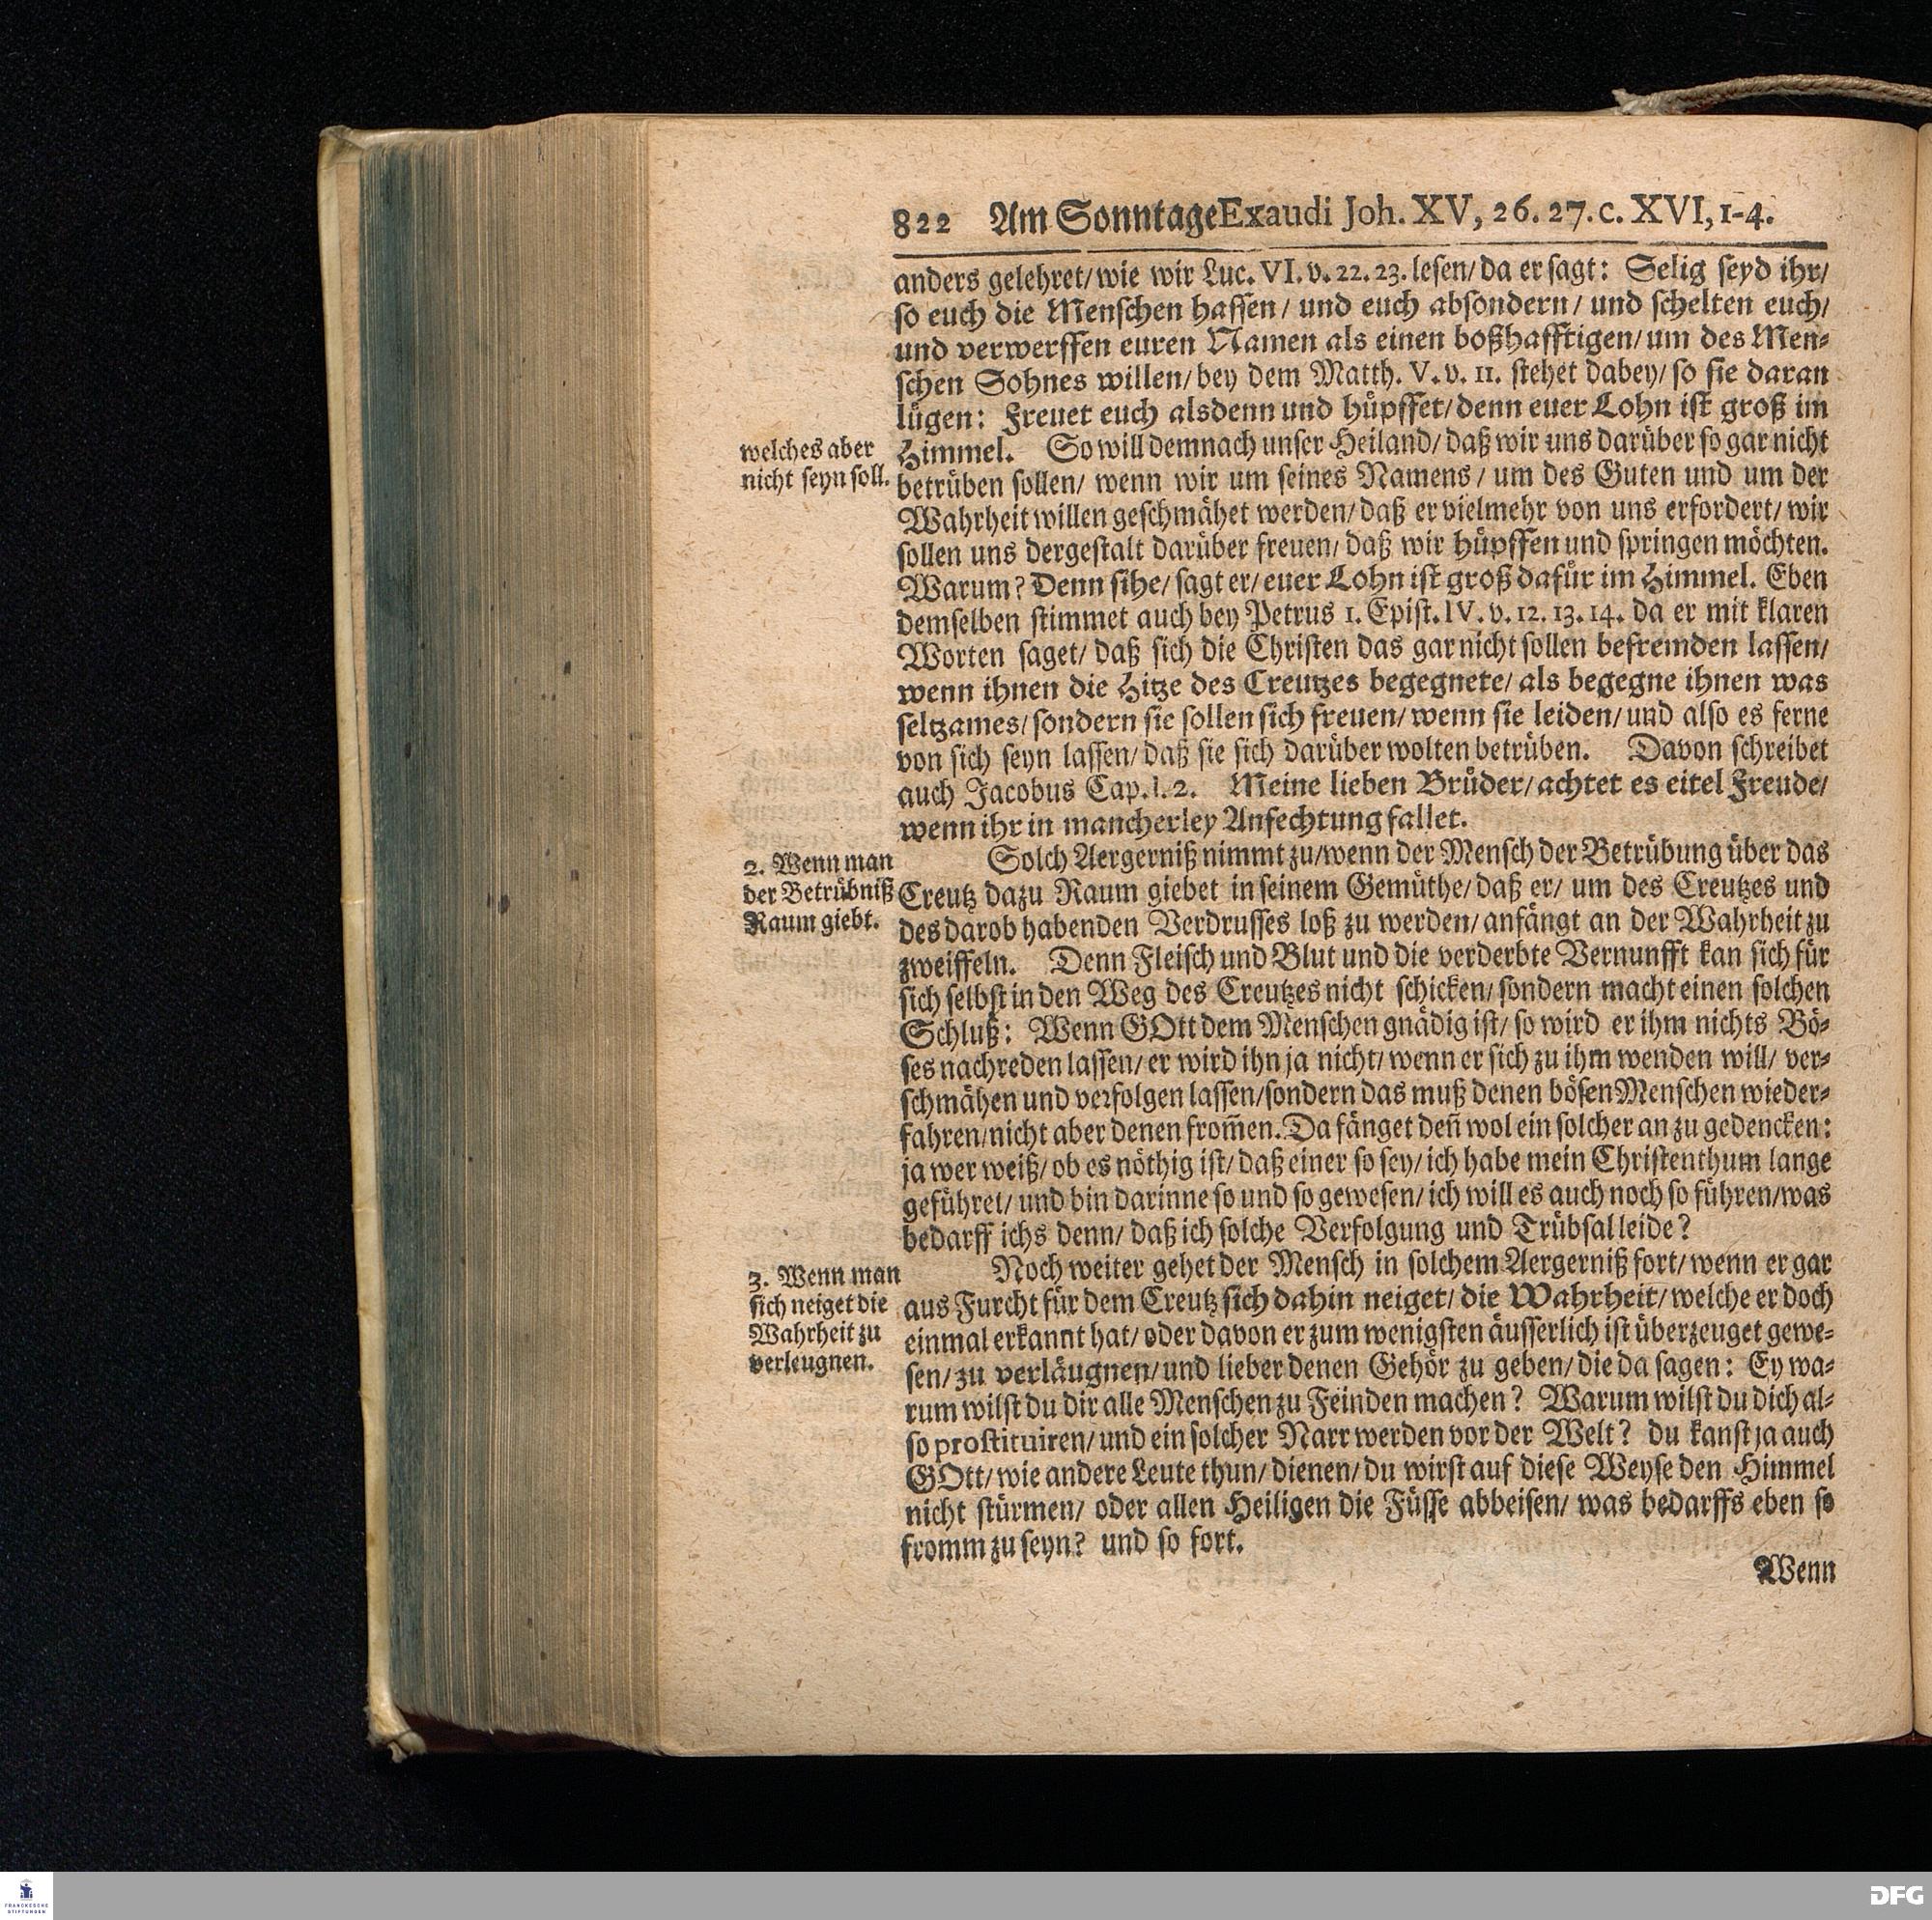 822 Am Sonntage Exaudi Joh. XV, 26. 27. c. XVI, 1-4.
anders gelehret/ wie wir Luc. VI. v. 22. 23. lesen/ da er sagt: Selig seyd ihr/
so euch die Menschen hassen/ und euch absondern/ und schelten euch/
und verwerffen euren Namen als einen boßhafftigen/ um des Men-
schen Sohnes willen/ bey dem Matth. V. v. 11. stehet dabey/ so sie daran
lügen: Freuet euch alsdenn und hüpffet/ denn euer Lohn ist groß im
welches aber
nicht seyn soll.
Himmel. So will demnach unser Heiland/ daß wir uns darüber so gar nicht
betrüben sollen/ wenn wir um seines Namens/ um des Guten und um der
Wahrheit willen geschmähet werden/ daß er vielmehr von uns erfordert/ wir
sollen uns dergestalt darüber freuen/ daß wir hüpffen und springen möchten.
Warum? Denn sihe/ sagt er/ euer Lohn ist groß dafür im Himmel. Eben
demselben stimmet auch bey Petrus 1. Epist. IV. v. 12. 13. 14. da er mit klaren
Worten saget/ daß sich die Christen das gar nicht sollen befremden lassen/
wenn ihnen die Hitze des Creutzes begegnete/ als begegne ihnen was
seltzames/ sondern sie sollen sich freuen/ wenn sie leiden/ und also es ferne
von sich seyn lassen/ daß sie sich darüber wolten betrüben. Davon schreibet
auch Jacobus Cap. I. 2. Meine lieben Brüder/ achtet es eitel Freude/
wenn ihr in mancherley Anfechtung fallet.
2. Wenn man
der Betrübniß
Raum giebt.
Solch Aergerniß nimmt zu/ wenn der Mensch der Betrübung über das
Creutz dazu Raum giebet in seinem Gemüthe/ daß er/ um des Creutzes und
des darob habenden Verdrusses loß zu werden/ anfängt an der Wahrheit zu
zweiffeln. Denn Fleisch und Blut und die verderbte Vernunfft kan sich für
sich selbst in den Weg des Creutzes nicht schicken/ sondern macht einen solchen
Schluß: Wenn GOtt dem Menschen gnädig ist/ so wird er ihm nichts Bö-
ses nachreden lassen/ er wird ihn ja nicht/ wenn er sich zu ihm wenden will/ ver-
schmähen und verfolgen lassen/ sondern das muß denen bösen Menschen wieder-
fahren/ nicht aber denen from̃en. Da fänget deñ wol ein solcher an zu gedencken:
ja wer weiß/ ob es nöthig ist/ daß einer so sey/ ich habe mein Christenthum lange
geführet/ und bin darinne so und so gewesen/ ich will es auch noch so führen/ was
bedarff ichs denn/ daß ich solche Verfolgung und Trübsal leide?
3. Wenn man
sich neiget die
Wahrheit zu
verleugnen.
Noch weiter gehet der Mensch in solchem Aergerniß fort/ wenn er gar
aus Furcht für dem Creutz sich dahin neiget/ die Wahrheit/ welche er doch
einmal erkannt hat/ oder davon er zum wenigsten äusserlich ist überzeuget gewe-
sen/ zu verläugnen/ und lieber denen Gehör zu geben/ die da sagen: Ey wa-
rum wilst du dir alle Menschen zu Feinden machen? Warum wilst du dich al-
so prostituiren/ und ein solcher Narr werden vor der Welt? du kanst ja auch
GOtt/ wie andere Leute thun/ dienen/ du wirst auf diese Weyse den Himmel
nicht stürmen/ oder allen Heiligen die Füsse abbeisen/ was bedarffs eben so
fromm zu seyn? und so fort.
Wenn
FRANCKESCHE
STIFTUNGEN
DFG